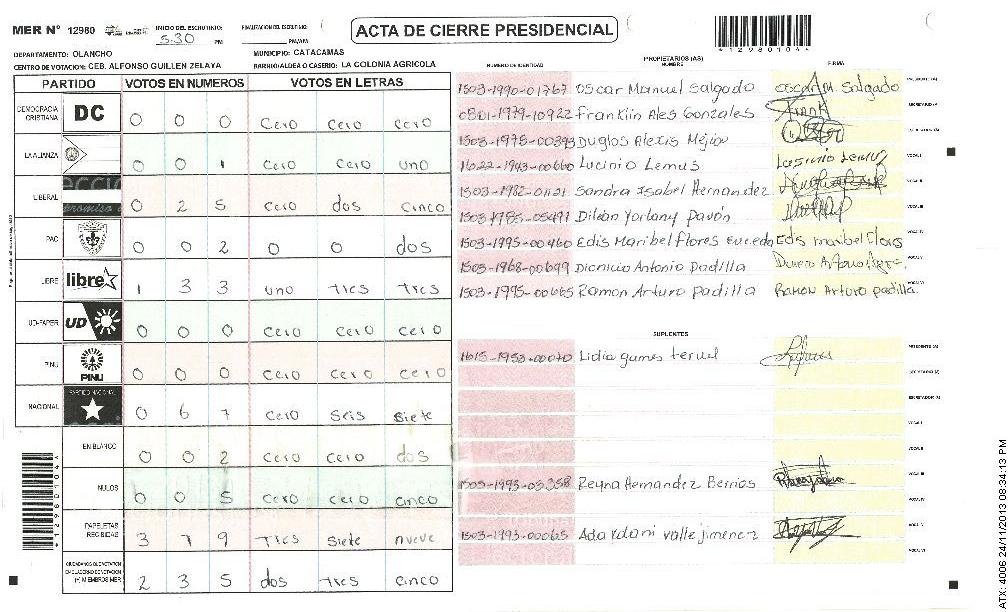 MER Nº 12980
INICIO DEL ESCRUTINIO: 5:30 PM
FINALIZACION DEL ESCRUTINIO: PM/AM
ACTA DE CIERRE PRESIDENCIAL
*12980104*
DEPARTAMENTO: OLANCHO
MUNICIPIO: CATACAMAS
CENTRO DE VOTACION: CEB. ALFONSO GUILLEN ZELAYA
BARRIO/ALDEA O CASERIO: LA COLONIA AGRICOLA
PARTIDO VOTOS EN NUMEROS VOTOS EN LETRAS
DEMOCRACIA CRISTIANA DC 0 0 0 cero cero cero
LA ALIANZA 0 0 1 cero cero uno
LIBERAL 0 2 5 cero dos cinco
PAC 0 0 2 0 0 dos
LIBRE libre 1 3 3 uno tres tres
UD-FAPER UD 0 0 0 cero cero cero
PINU PINU 0 0 0 cero cero cero
NACIONAL PARTIDO NACIONAL 0 6 7 cero seis siete
EN BLANCO 0 0 2 cero cero dos
NULOS 0 0 5 cero cero cinco
PAPELETAS RECIBIDAS 3 7 9 tres siete nueve
(+) MIEMBROS MER 2 3 5 dos tres cinco
PROPIETARIOS (AS)
NUMERO DE IDENTIDAD NOMBRE FIRMA
1503-1990-01767 Oscar Manuel Salgado Oscar M. Salgado
0801-1979-10922 Franklin Ales Gonzales Frank
1503-1975-00393 Duglos Alexis Mejia
1622-1943-00660 Lucinio Lemus Lucinio Lemus
1503-1982-01121 Sandra Isabel Hernandez
1503-1985-05491 Dilcan Yorlany Pavón
1503-1995-00460 Edis Maribel Flores Euceda Edis maribel Flores
1503-1968-00699 Dionicio Antonio Padilla
1503-1995-00665 Ramon Arturo Padilla Ramon Arturo padilla
SUPLENTES
1615-1953-00070 Lidia gumes teruel
1503-1993-03358 Reyna Hernandez Berrios
1503-1993-00065 Ada Ydani valle jimenez
*12980104*
ATX: 4006 24/11/2013 08:34:13 PM